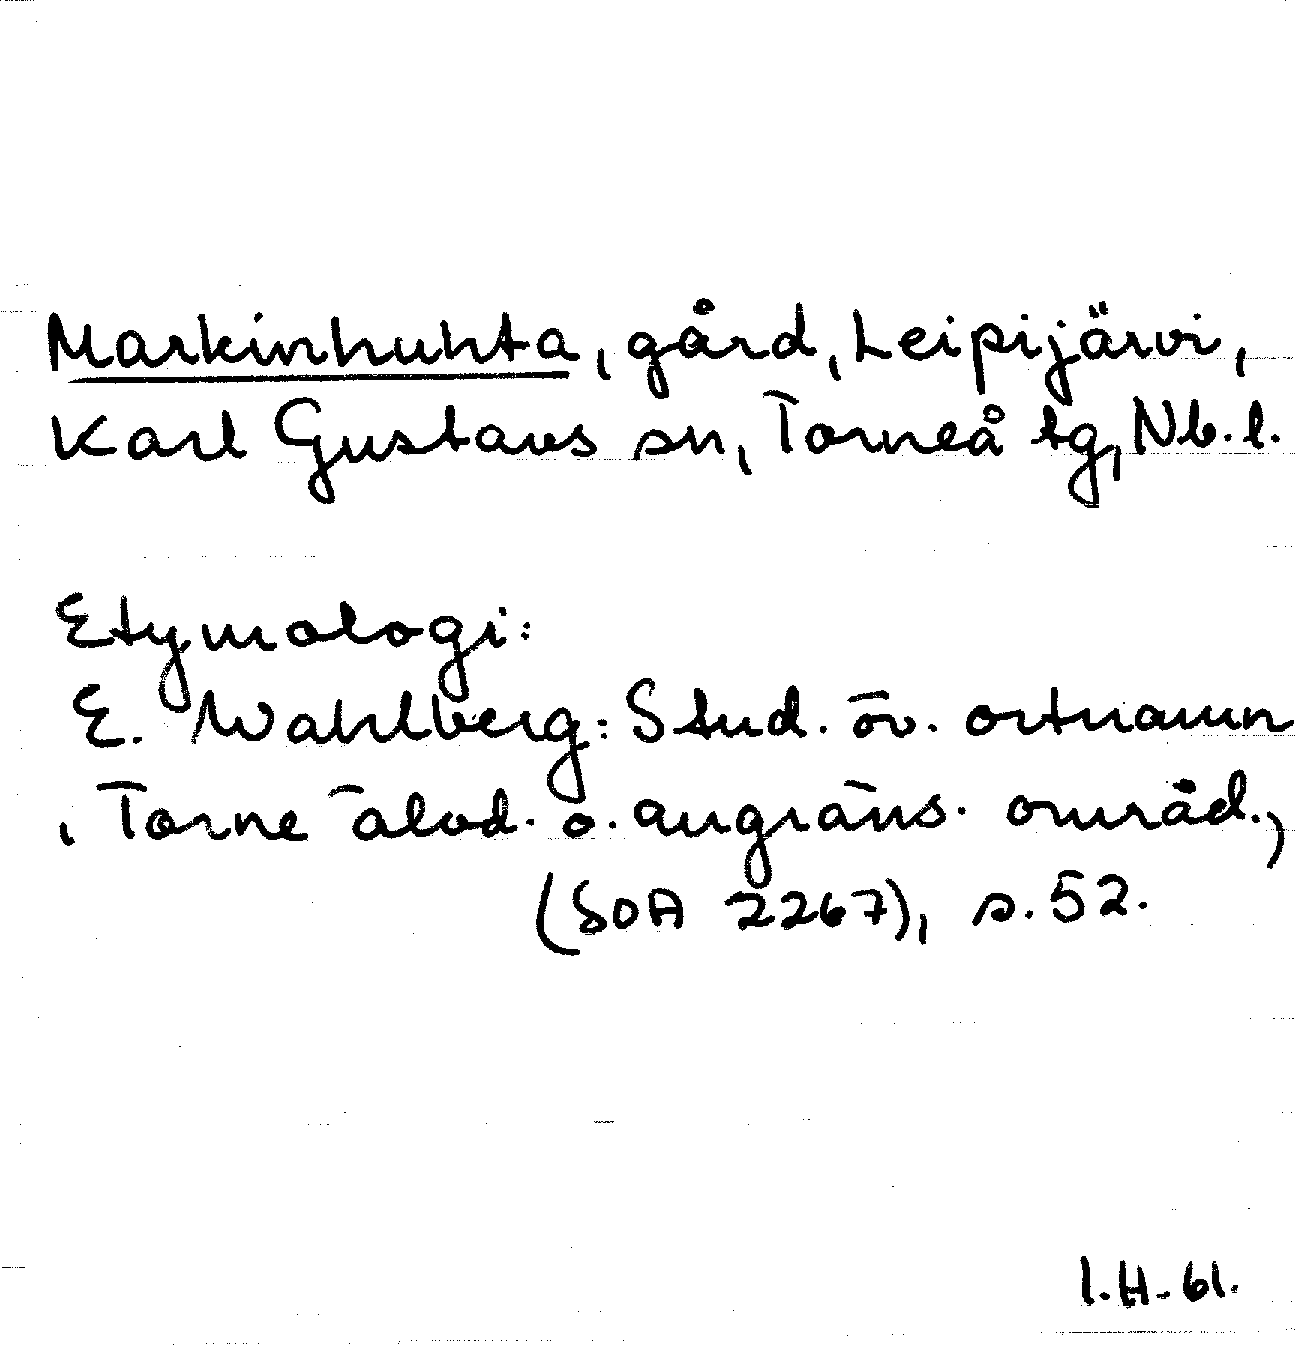 Markinhuhta, gård, Leipijärvi,
Karl Gustavs sn, Torneå tg, Nb.l.
Etymologi:
E. Wahlberg: Stud. öv. ortnamn
i Torne älvd. o. angräns. områd.,
(SOA 2267), s. 52.
I.H-61.